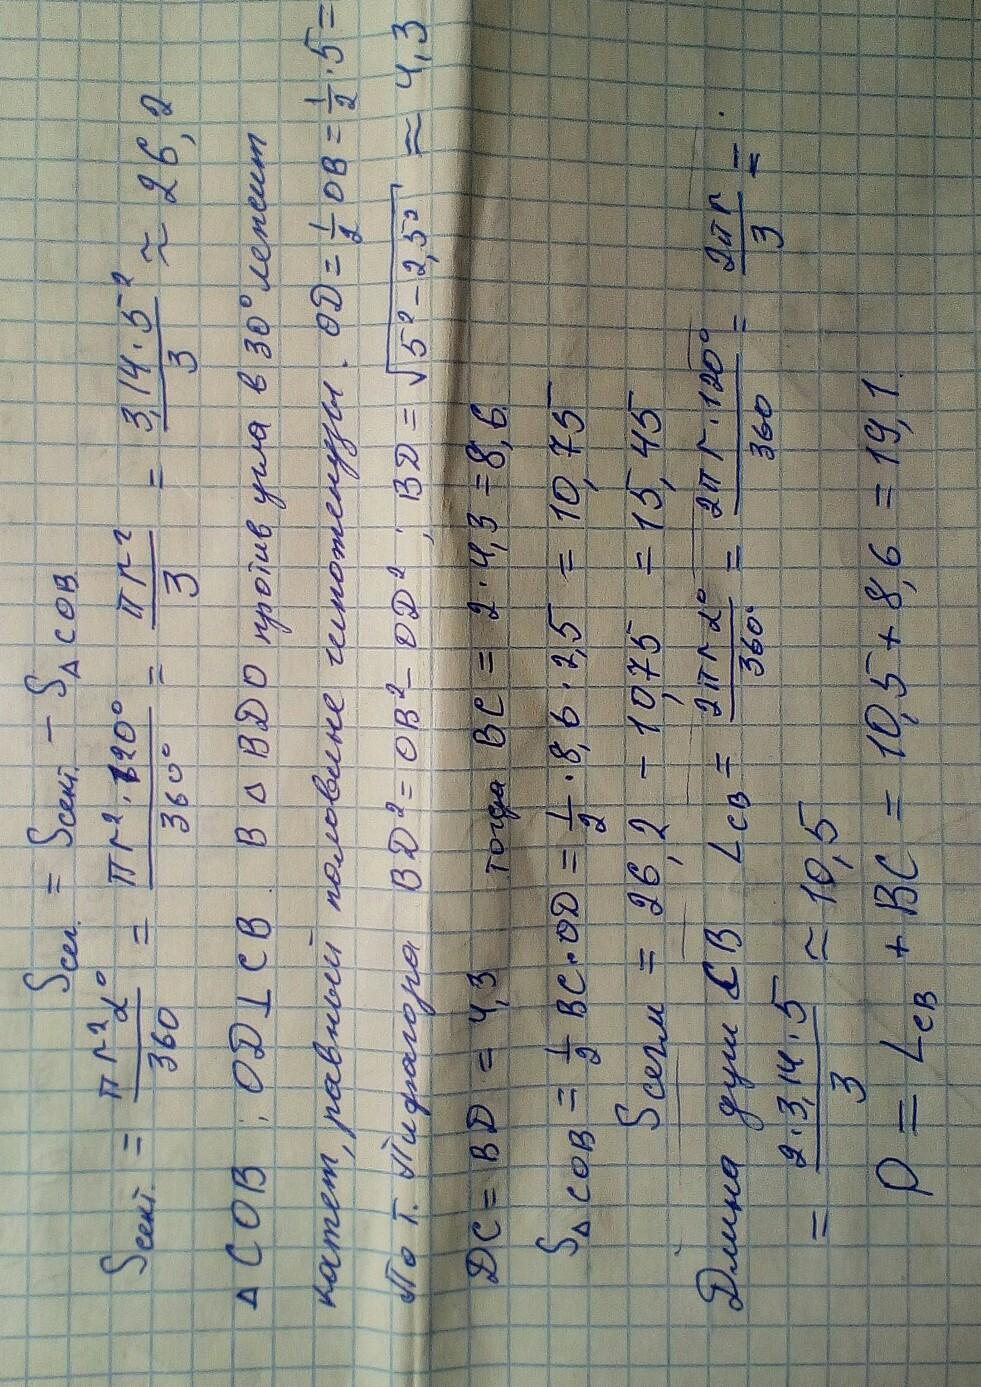 Sсег. = Sсект. − S△COB
Sсект. = πr²α°/360 = πr²·120°/360° = πr²/3 = 3,14·5²/3 ≈ 26,2
△COB: OD⊥CB. В △BDO против угла в 30° лежит
катет, равный половине гипотенузы. OD = 1/2 OB = 1/2·5 =
По т. Пифагора BD² = OB² − OD²; BD = √5² − 2,5² ≈ 4,3
DC = BD = 4,3 тогда BC = 2·4,3 = 8,6.
S△COB = 1/2 BC·OD = 1/2·8,6·2,5 = 10,75
Sсегм = 26,2 − 10,75 = 15,45
Длина дуги CB LCB = 2πrα°/360° = 2πr·120°/360 = 2πr/3 =
= 2·3,14·5/3 ≈ 10,5
P = LCB + BC = 10,5 + 8,6 = 19,1.